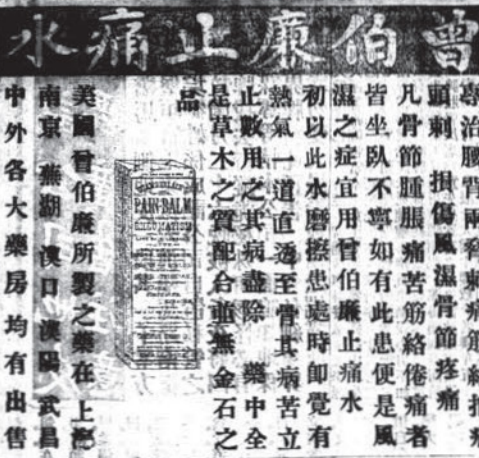 曾伯廉止痛水
專治腰背兩脅刺痛筋絡
頭刺 損傷風濕骨節疼痛
凡骨節腫脹痛苦筋絡倦痛者
皆坐臥不寧如有此患便是風
濕之症宜用曾伯廉止痛水
初以此水磨擦患處時卽覺有
熱氣一道直透至骨其病苦立
止數用之其病盡除 藥中全
是草木之質配合並無金石之
品
PAIN-BALM
RHEUMATISM
美國曾伯廉所製之藥在上海
南京 蕪湖 漢口漢陽武昌
中外各大藥房均有出售